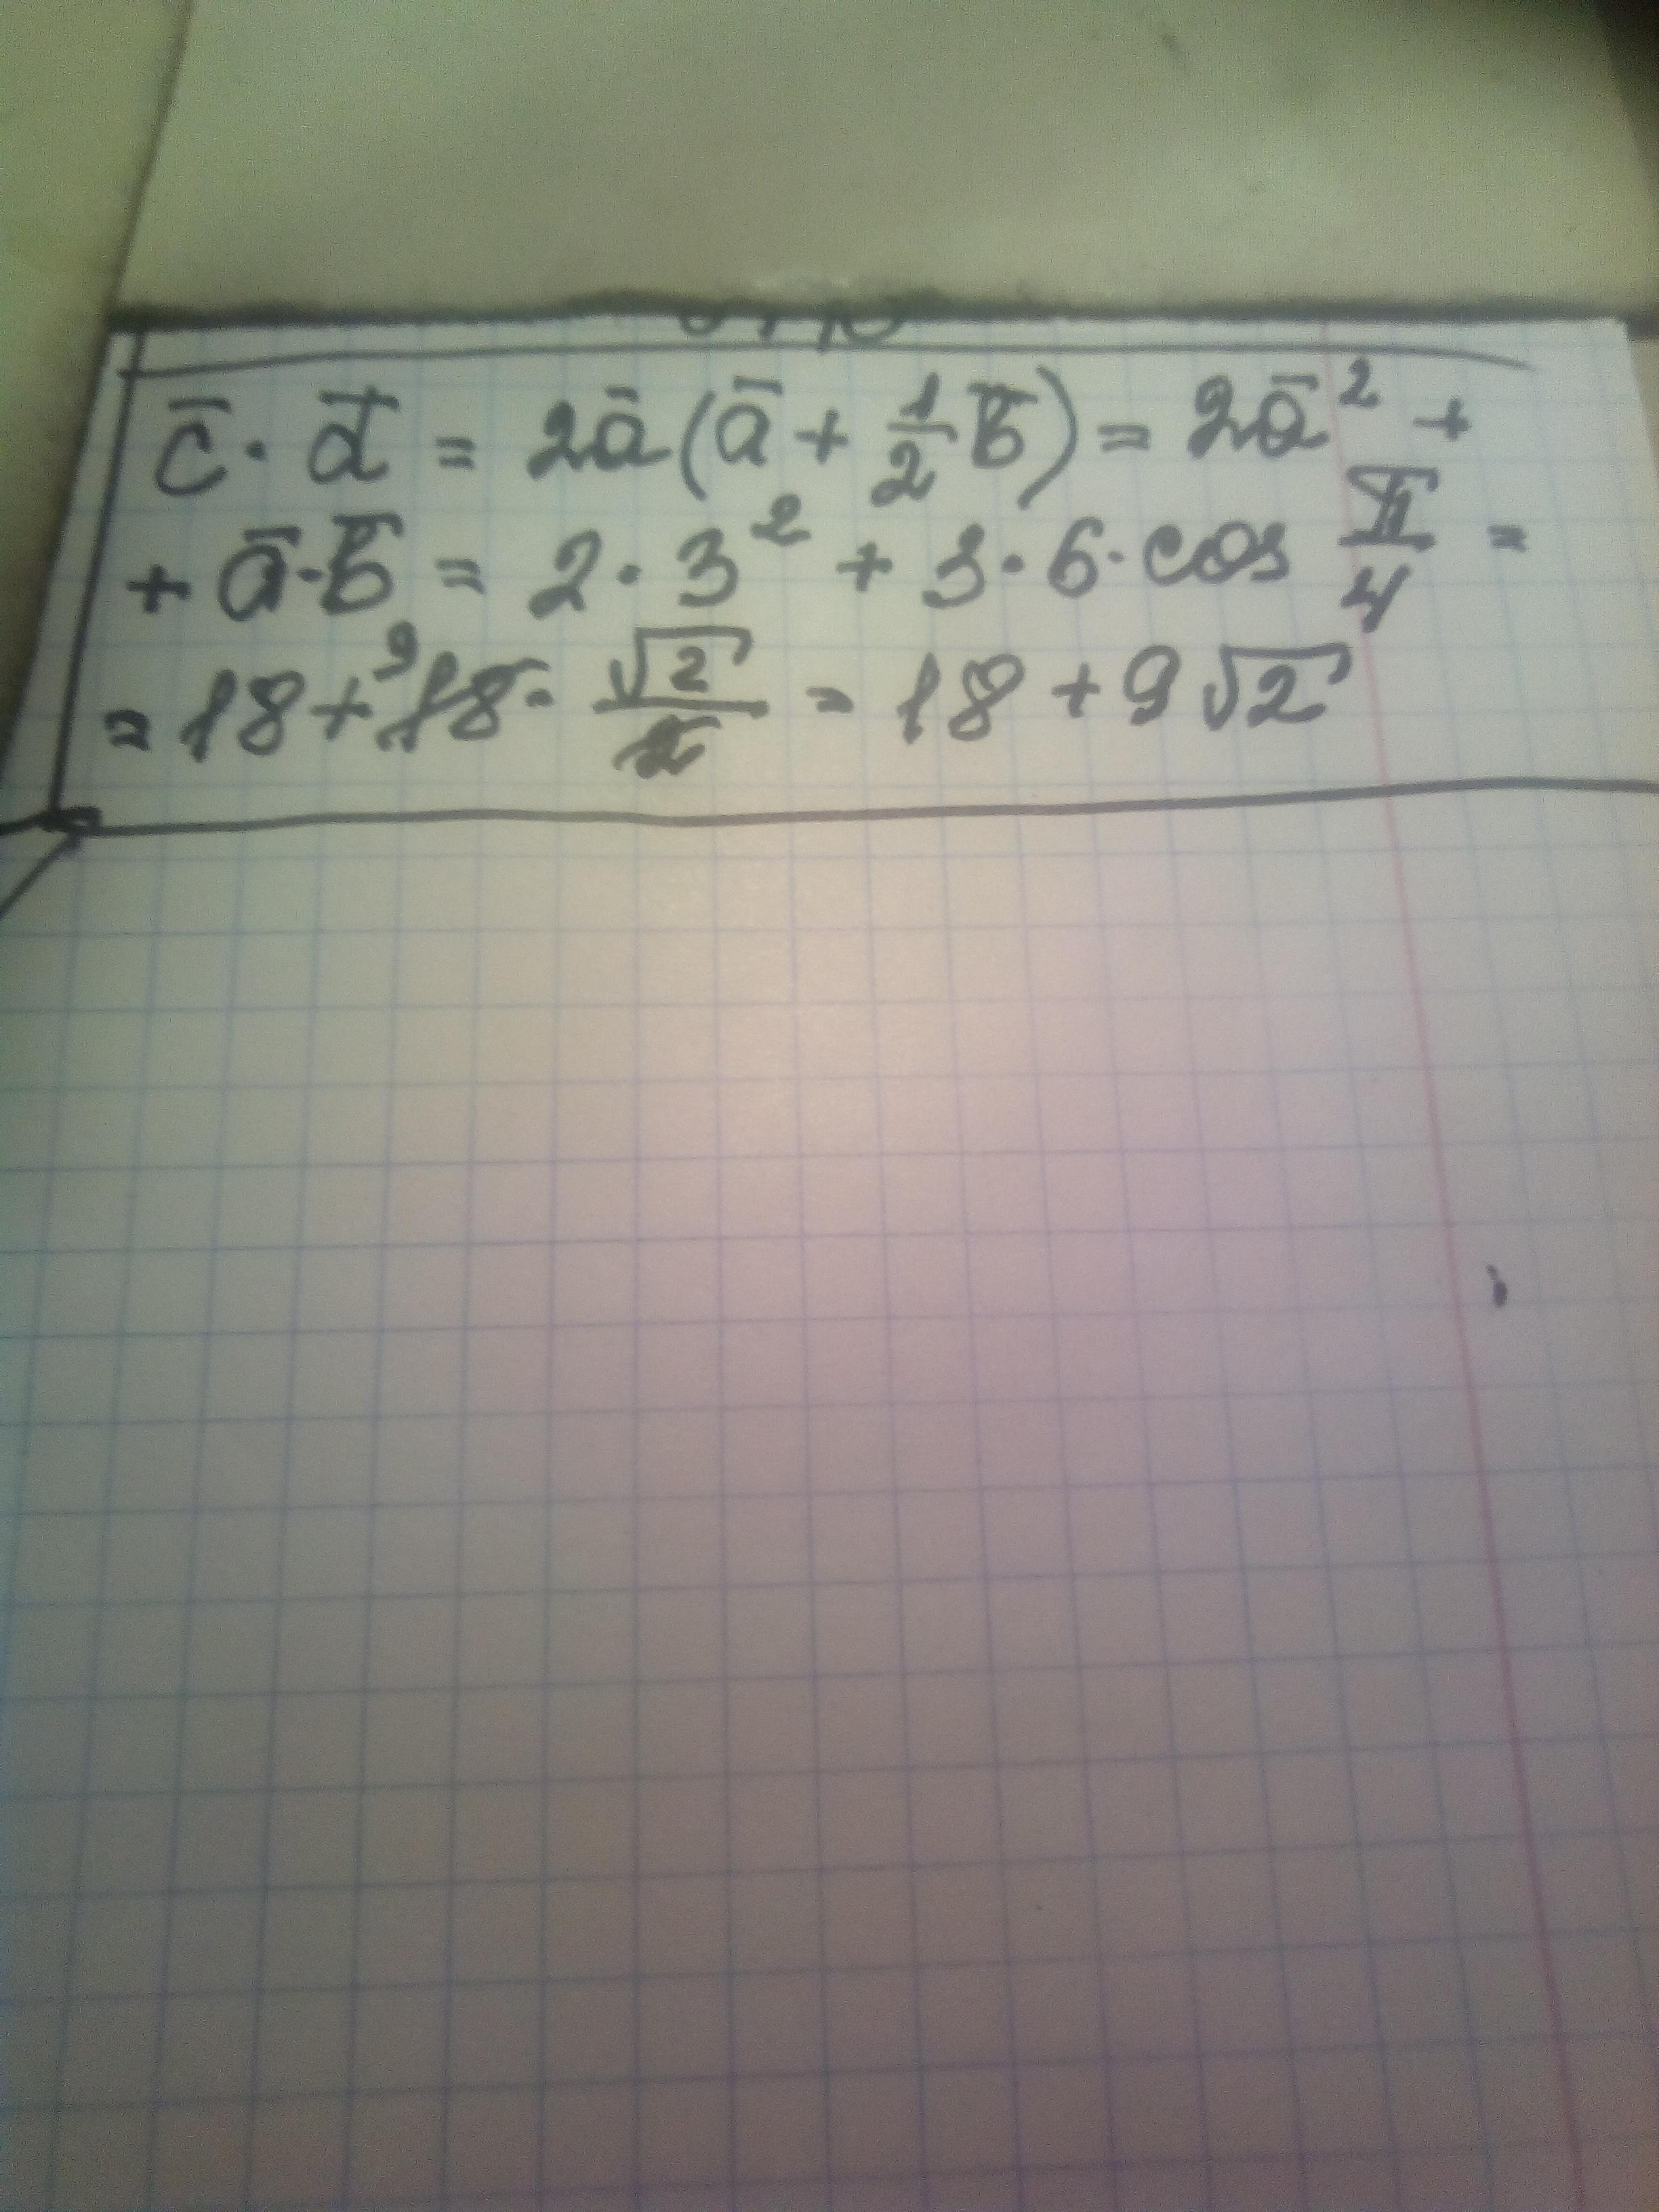 c̄ · d̄ = 2ā(ā + 1/2 b̄) = 2ā² +
+ ā · b̄ = 2 · 3² + 3 · 6 · cos π/4 =
= 18 + 18 9 · √2/2 = 18 + 9√2